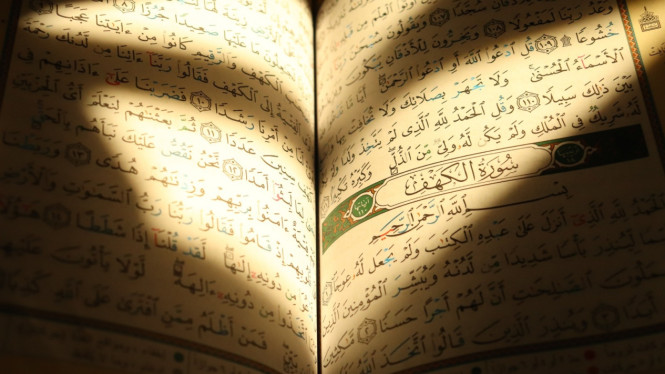 أُوتُوا۟ ٱلْعِلْمَ مِن
سُجَّدًا ١٠٧ وَيَقُولُونَ
وَعْدُ رَبِّنَا لَمَفْعُولًا ١٠٨ وَيَخِرُّونَ لِلْأَذْقَانِ يَبْكُونَ
خُشُوعًا ١٠٩ قُلِ ٱدْعُوا۟ ٱللَّهَ أَوِ ٱدْعُوا۟ ٱلرَّحْمَٰنَ
ٱلْأَسْمَآءُ ٱلْحُسْنَىٰ وَلَا تَجْهَرْ بِصَلَاتِكَ وَلَا تُخَافِتْ
بَيْنَ ذَٰلِكَ سَبِيلًا ١١٠ وَقُلِ ٱلْحَمْدُ لِلَّهِ ٱلَّذِى لَمْ يَتَّخِذْ وَلَدًا وَلَمْ
لَّهُۥ شَرِيكٌ فِى ٱلْمُلْكِ وَلَمْ يَكُن لَّهُۥ وَلِىٌّ مِّنَ ٱلذُّلِّ وَكَبِّرْهُ تَكْبِيرًا
سُورَةُ ٱلْكَهْفِ
بِسْمِ ٱللَّهِ ٱلرَّحْمَٰنِ ٱلرَّحِيمِ
ٱلْحَمْدُ لِلَّهِ ٱلَّذِىٓ أَنزَلَ عَلَىٰ عَبْدِهِ ٱلْكِتَٰبَ وَلَمْ يَجْعَل لَّهُۥ عِوَجَا
لِّيُنذِرَ بَأْسًا شَدِيدًا مِّن لَّدُنْهُ وَيُبَشِّرَ ٱلْمُؤْمِنِينَ ٱلَّذِينَ
يَعْمَلُونَ ٱلصَّٰلِحَٰتِ أَنَّ لَهُمْ أَجْرًا حَسَنًا ٢ مَّٰكِثِينَ
وَيُنذِرَ ٱلَّذِينَ قَالُوا۟ ٱتَّخَذَ ٱللَّهُ
مَا عَلَيْهَا صَعِيدًا جُرُزًا ٨
ٱلْكَهْفِ وَٱلرَّقِيمِ كَانُوا۟ مِنْ ءَايَٰتِنَا عَجَبًا
ٱلْكَهْفِ فَقَالُوا۟ رَبَّنَآ ءَاتِنَا مِن لَّدُنكَ رَحْمَةً
لَنَا مِنْ أَمْرِنَا رَشَدًا ١٠ فَضَرَبْنَا عَلَىٰٓ ءَاذَانِهِمْ فِى
ٱلْكَهْفِ سِنِينَ عَدَدًا ١١ ثُمَّ بَعَثْنَٰهُمْ لِنَعْلَمَ أَىُّ ٱلْحِزْبَيْنِ
أَحْصَىٰ لِمَا لَبِثُوٓا۟ أَمَدًا ١٢ نَّحْنُ نَقُصُّ عَلَيْكَ نَبَأَهُم بِٱلْحَقِّ
ءَامَنُوا۟ بِرَبِّهِمْ وَزِدْنَٰهُمْ هُدًى ١٣ وَرَبَطْنَا
إِذْ قَامُوا۟ فَقَالُوا۟ رَبُّنَا رَبُّ ٱلسَّمَٰوَٰتِ وَٱلْأَرْضِ
مِن دُونِهِۦٓ إِلَٰهًا لَّقَدْ قُلْنَآ إِذًا شَطَطًا ١٤ هَٰٓؤُلَآءِ
ٱتَّخَذُوا۟ مِن دُونِهِۦٓ ءَالِهَةً لَّوْلَا يَأْتُونَ عَلَيْهِم
فَمَنْ أَظْلَمُ مِمَّنِ ٱفْتَرَىٰ عَلَى ٱللَّهِ كَذِبًا